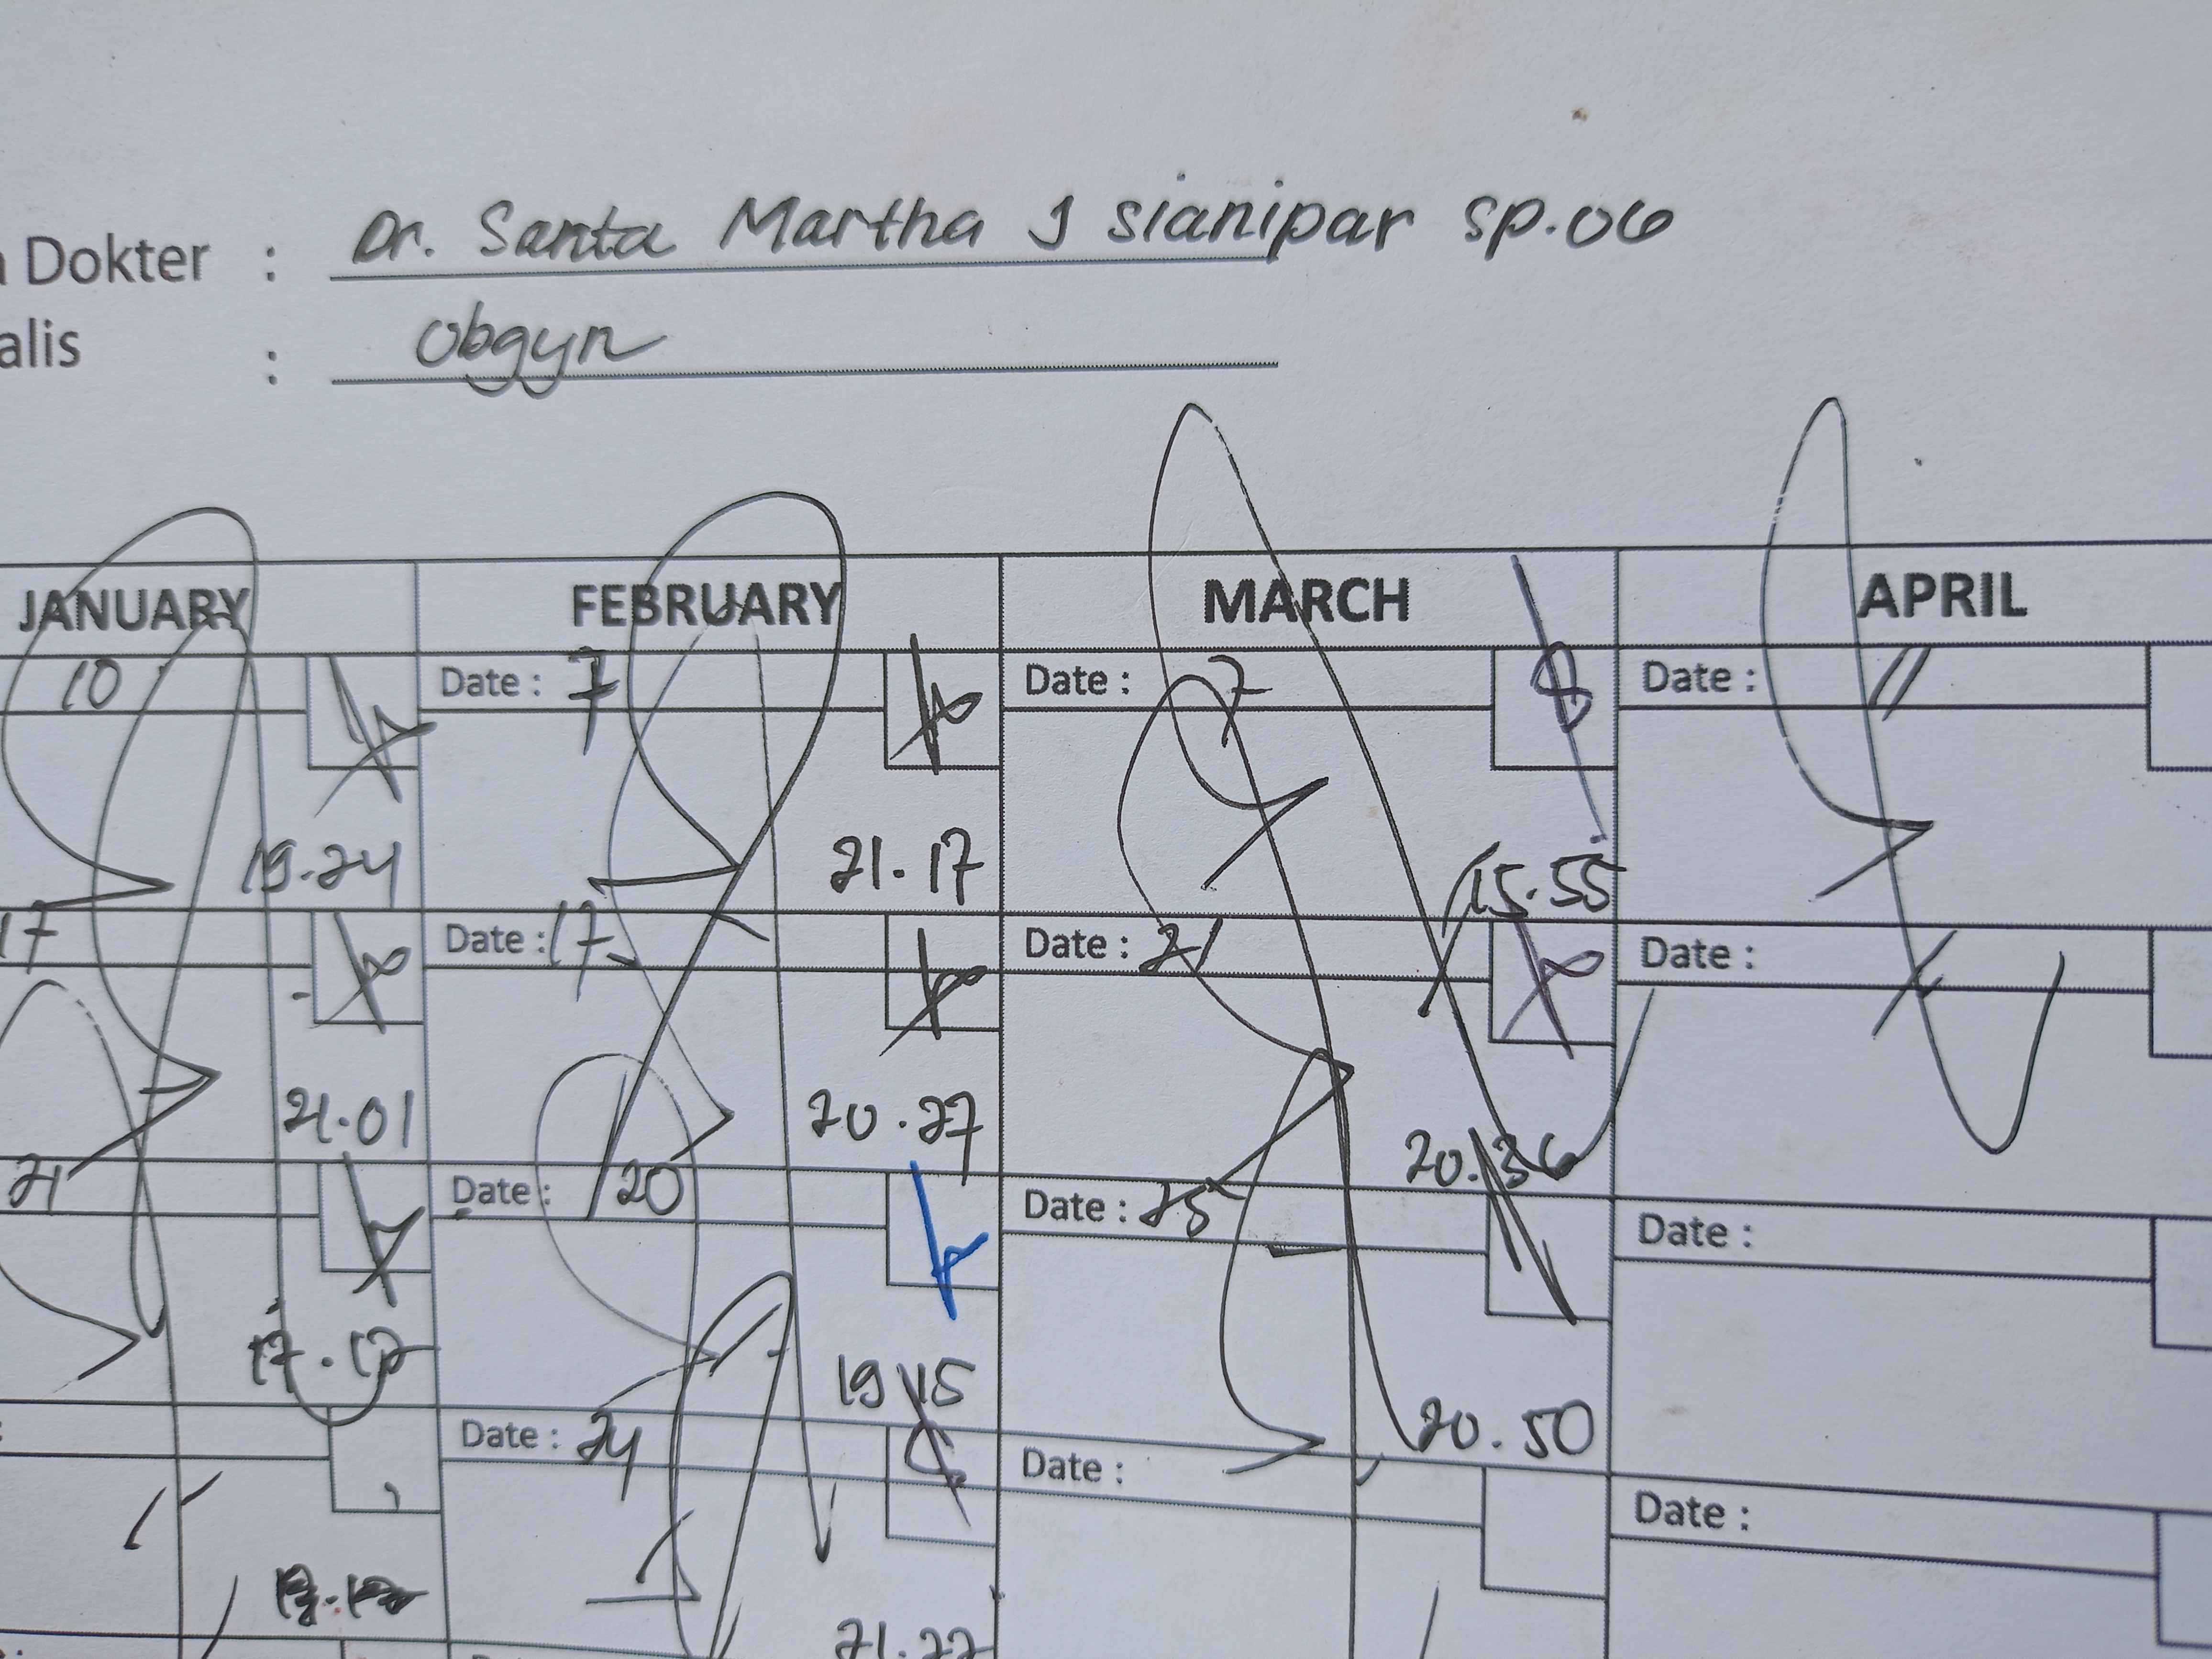 Dokter : Dr. Santa Martha J Sianipar Sp.OG
alis : Obgyn
JANUARY FEBRUARY MARCH APRIL
10 Date : 7 Date : 7 Date : 11
19.24 21.17 15.55
17 Date : 17 Date : 21 Date :
21.01 20.27 20.36
21 Date : 20 Date : 25 Date :
17.17 19.15 20.50
Date : 24 Date : Date :
21.22